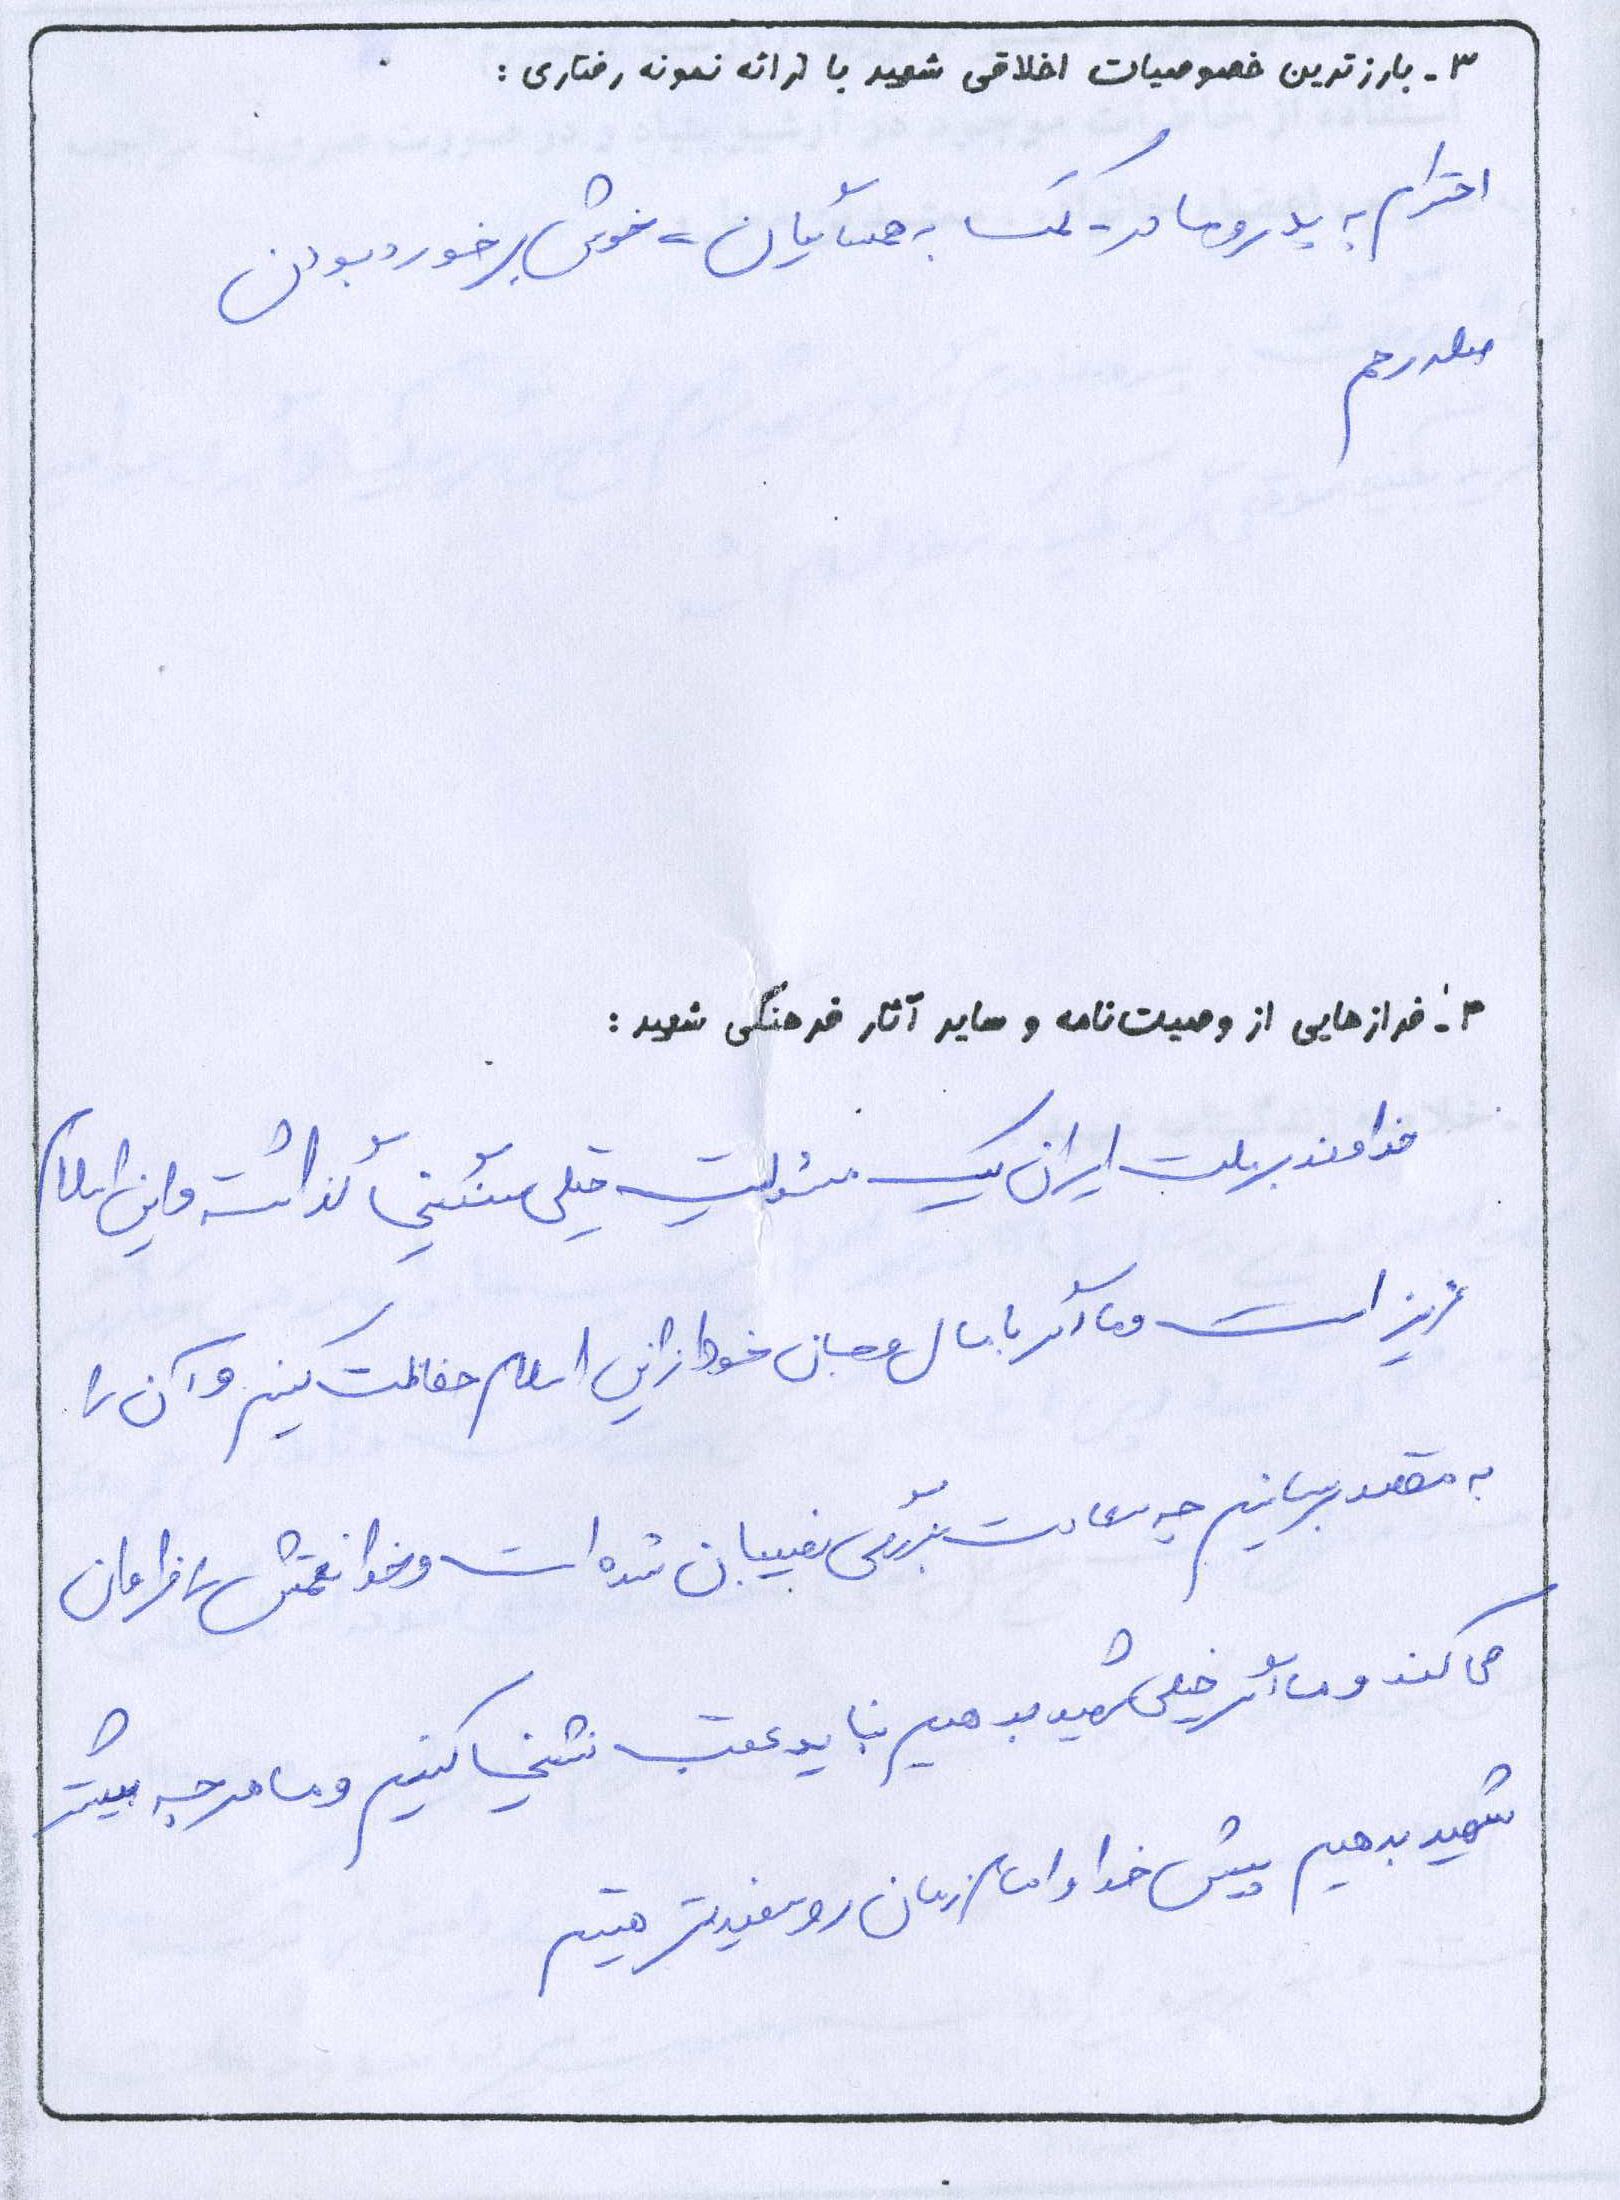 ۳ـ بارزترین خصوصیات اخلاقی شهید با ارائه نمونه رفتاری :
احترام به پدر و مادر - کمک به همسایگان - خوش برخورد بودن
صله رحم
۴ـ فرازهایی از وصیت‌نامه و سایر آثار فرهنگی شهید :
خداوند بر ملت ایران یک مسئولیت خیلی سنگینی گذاشته و این اسلام
عزیز است و ما اگر با مال و جان خود از این اسلام حفاظت کنیم و آن را
به مقصد برسانیم چه سعادت بزرگی نصیبمان شده است و خدا نعمتش را فراوان
می کند و ما اگر خیلی شهید بدهیم نباید عقب نشینی کنیم و ما هر چه بیشتر
شهید بدهیم پیش خدا و امام زمان رو سفیدتر هستیم